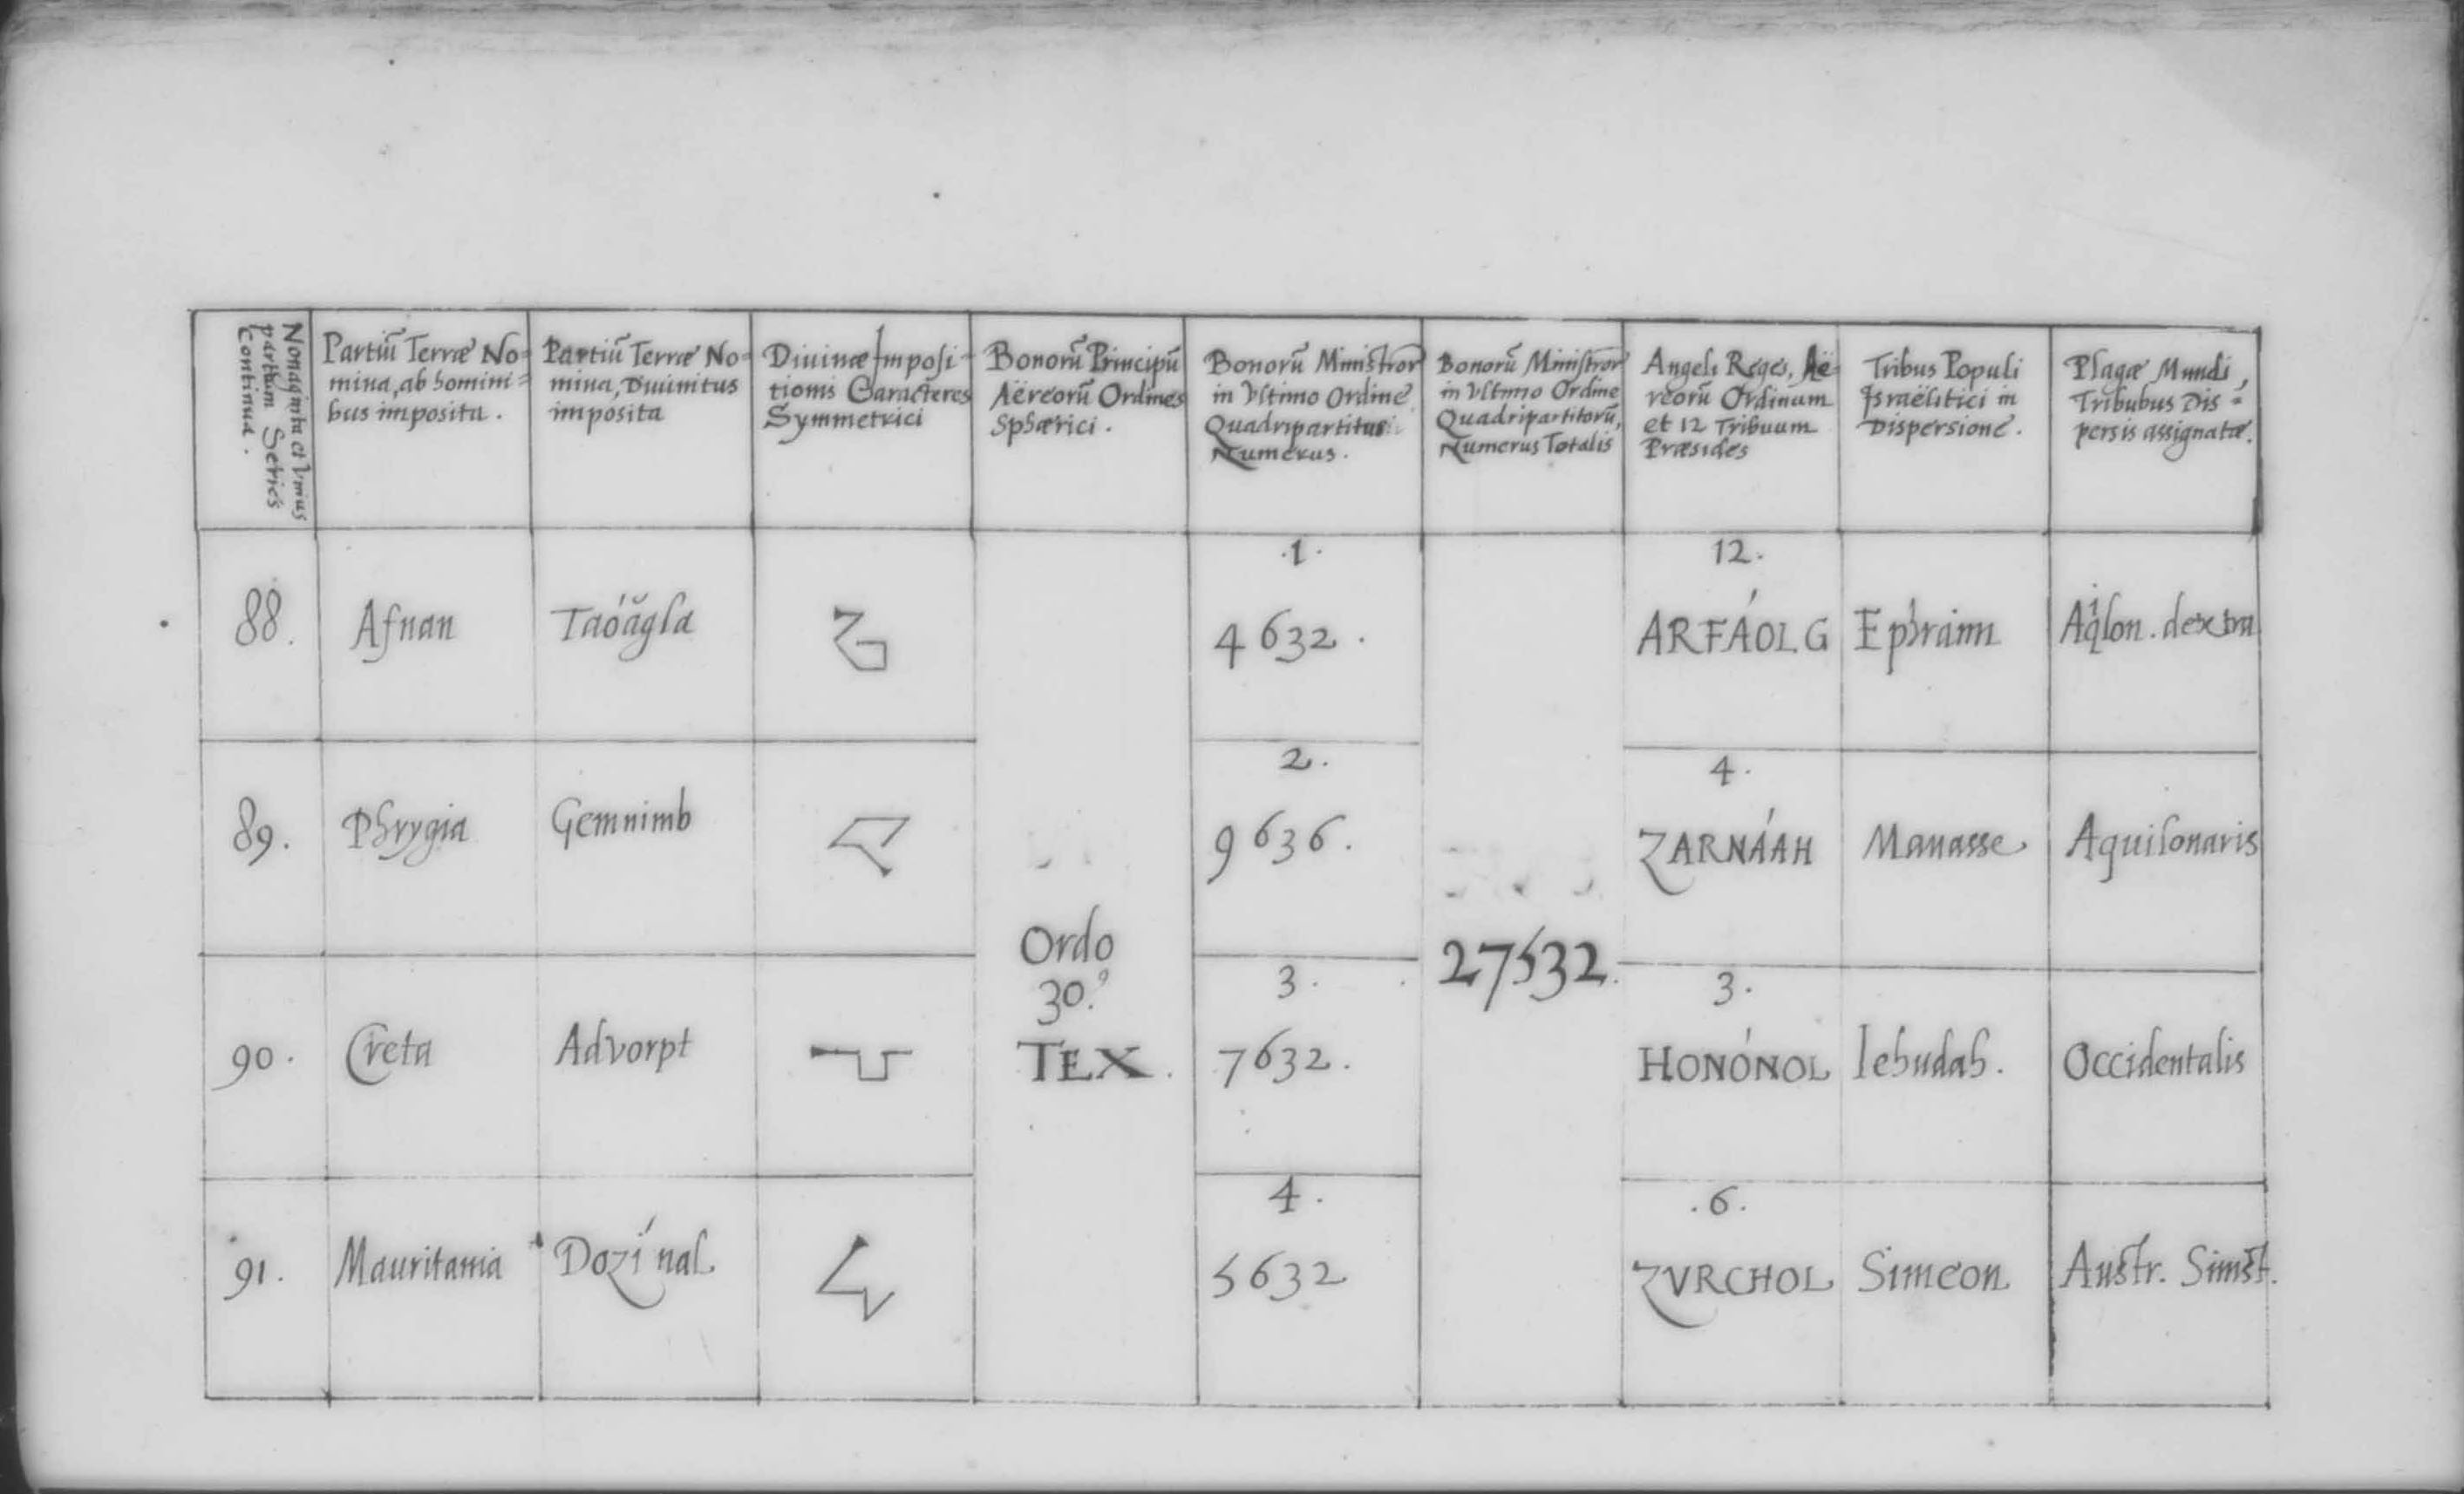 Nonaginta et Vnius
partium Series
Continua.
Partiũ Terræ No=
mina, ab homini=
bus imposita.
Partiũ Terræ No=
mina, Diuinitus
imposita
Diuinæ Imposi-
tionis Caracteres
Symmetrici
Bonorũ Principũ
Aëreorũ Ordines
Sphærici.
Bonorũ Ministror
in Vltimo Ordine
Quadripartitus
Numerus.
Bonorũ Ministror
in Vltimo Ordine
Quadripartitorũ,
Numerus Totalis
Angeli Reges, Aë=
reorũ Ordinum
et 12 Tribuum
Præsides
Tribus Populi
Israëlitici in
Dispersione.
Plagæ Mundi,
Tribubus Dis=
persis assignatæ.
88.
Afnan
Taóăgla
.1.
4632.
12.
ARFÁOLG
Ephraim
Aqlon. dextra
89.
Phrygia
Gemnimb
2.
9636.
4.
ZARNÁAH
Manasse
Aquilonaris
Ordo
30.º
TEX.
27532.
90.
Creta
Advorpt
3.
7632.
3.
HONÓNOL
Iehudah.
Occidentalis
91.
Mauritania
Dozínal
4.
5632
.6.
ZVRCHOL
Simeon
Austr. Sinist.